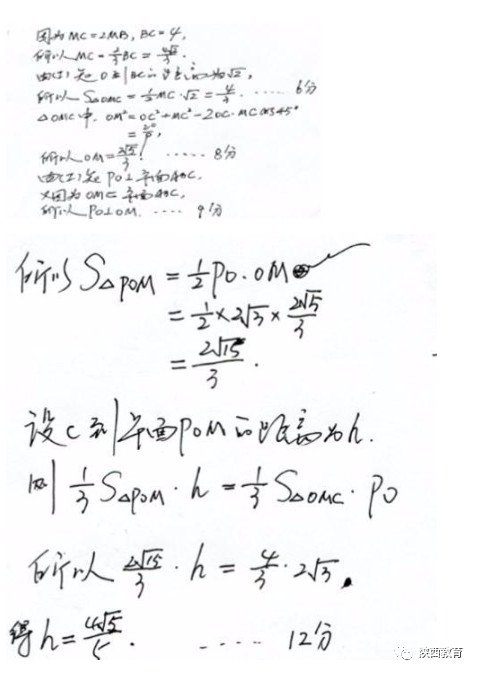 因为 MC=2MB, BC=4,
所以 MC=2/3 BC=4√2/3.
由(1)知 O到BC的距离为√2,
所以 S△OMC=1/2 MC·√2=4/3. …… 6分
△OMC中, OM²=OC²+MC²-2OC·MCcos45°
=20/9,
所以OM=2√5/3. …… 8分
由(1)知 PO⊥平面ABC,
又因为 OM⊂平面ABC,
所以PO⊥OM. …… 9分
所以 S△POM=1/2 PO·OM
=1/2×2√3×2√5/3
=2√15/3.
设C到平面POM的距离为h.
则 1/3 S△POM·h=1/3 S△OMC·PO
所以 2√15/3·h=4/3·2√3.
得h=4√5/5. …… 12分
陕西教育